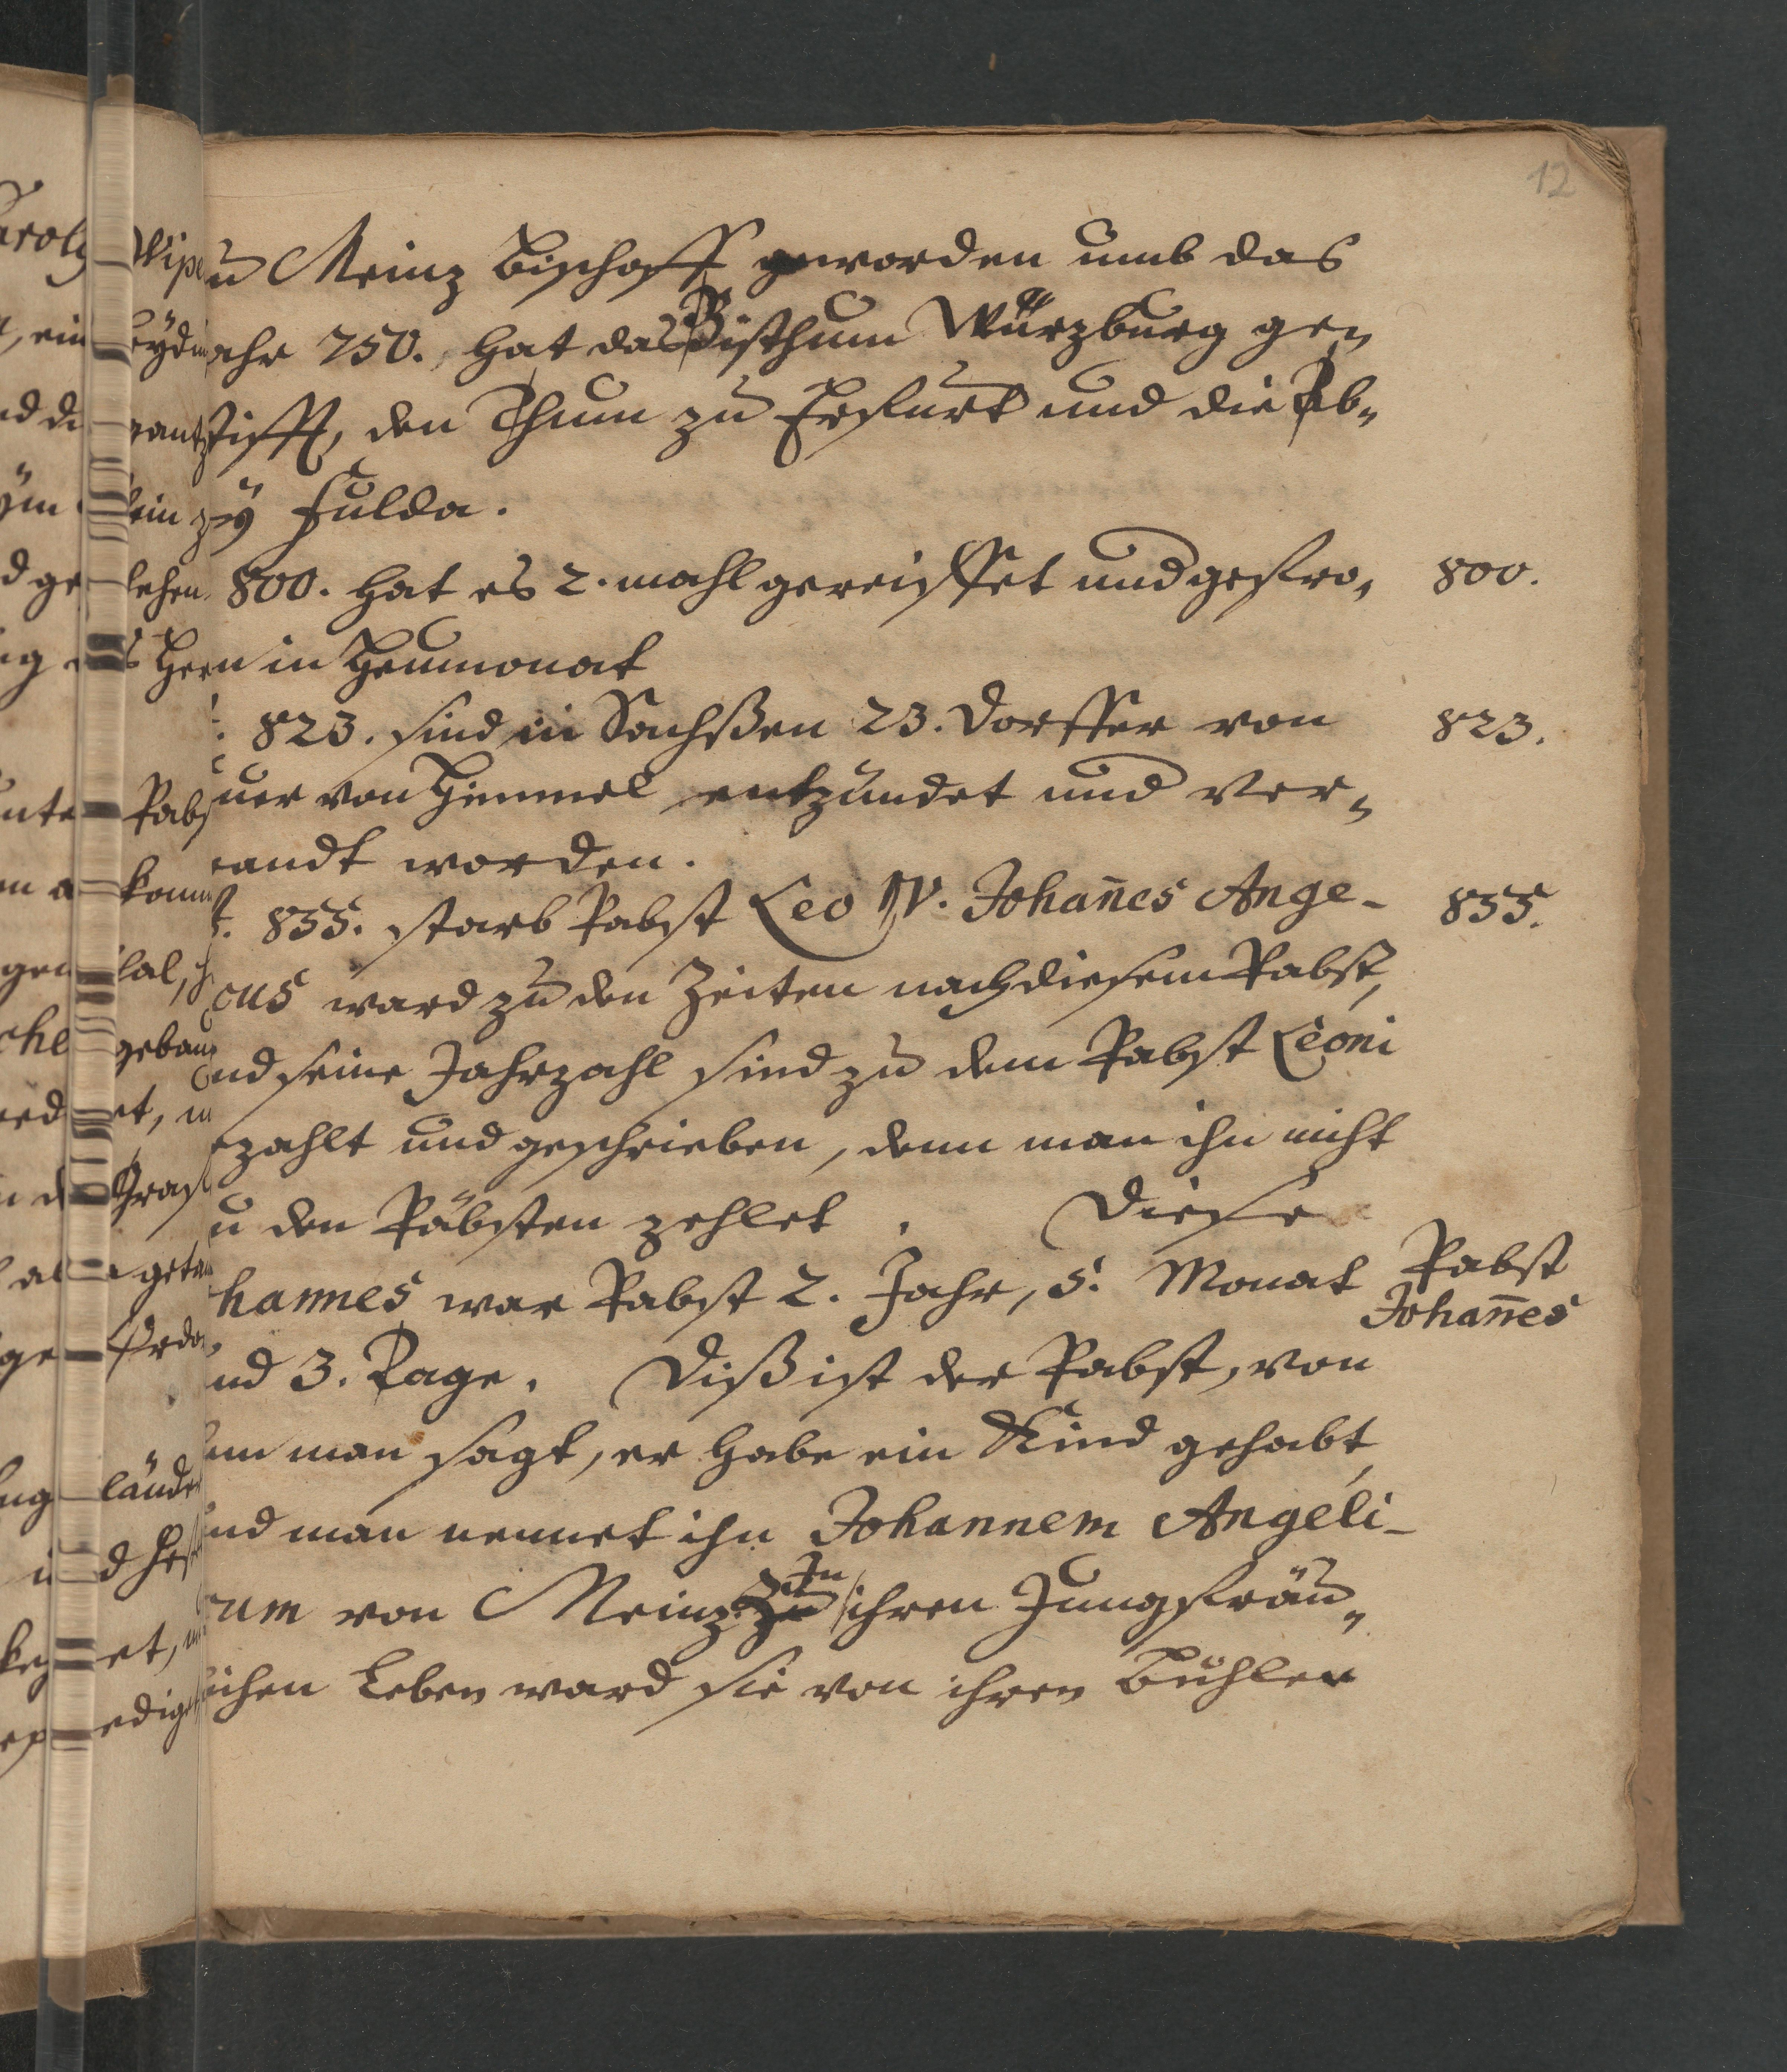 12
u Meinz Bischoff geworden umb das
ahr 750. hat das Bisthum Würzburg ge„
stifft, den Thum zu Erfurt und die Ab„
ey Fulda.
800. hat es 2. mahl gereiffet und gefro„
n in Heumonat
800.
823. sind in Sachßen 23. Dorffer von
823.
uer von Himmel entzundet und ver„
andt worden.
855. starb Pabst Leo IV. Johan̄es Ange-
855.
cus ward zu den Zeiten nach diesem Pabst,
nd seine Jahrzahl sind zu dem Pabst Leoni
ezahlt und geschrieben, denn man ihn nicht
u den Päbsten zehlet. Diese
hannes war Pabst 2. Jahr, 5. Monat
Pabst
Johan̄es
nd 3. Tage. Diß ist der Pabst, von
em man sagt, er habe ein Kind gehabt,
nd man nennet ihn Johannem Angeli-
cum von Meinz. In ihren Jungfräu„
ichen Leben ward sie von ihren Buhler